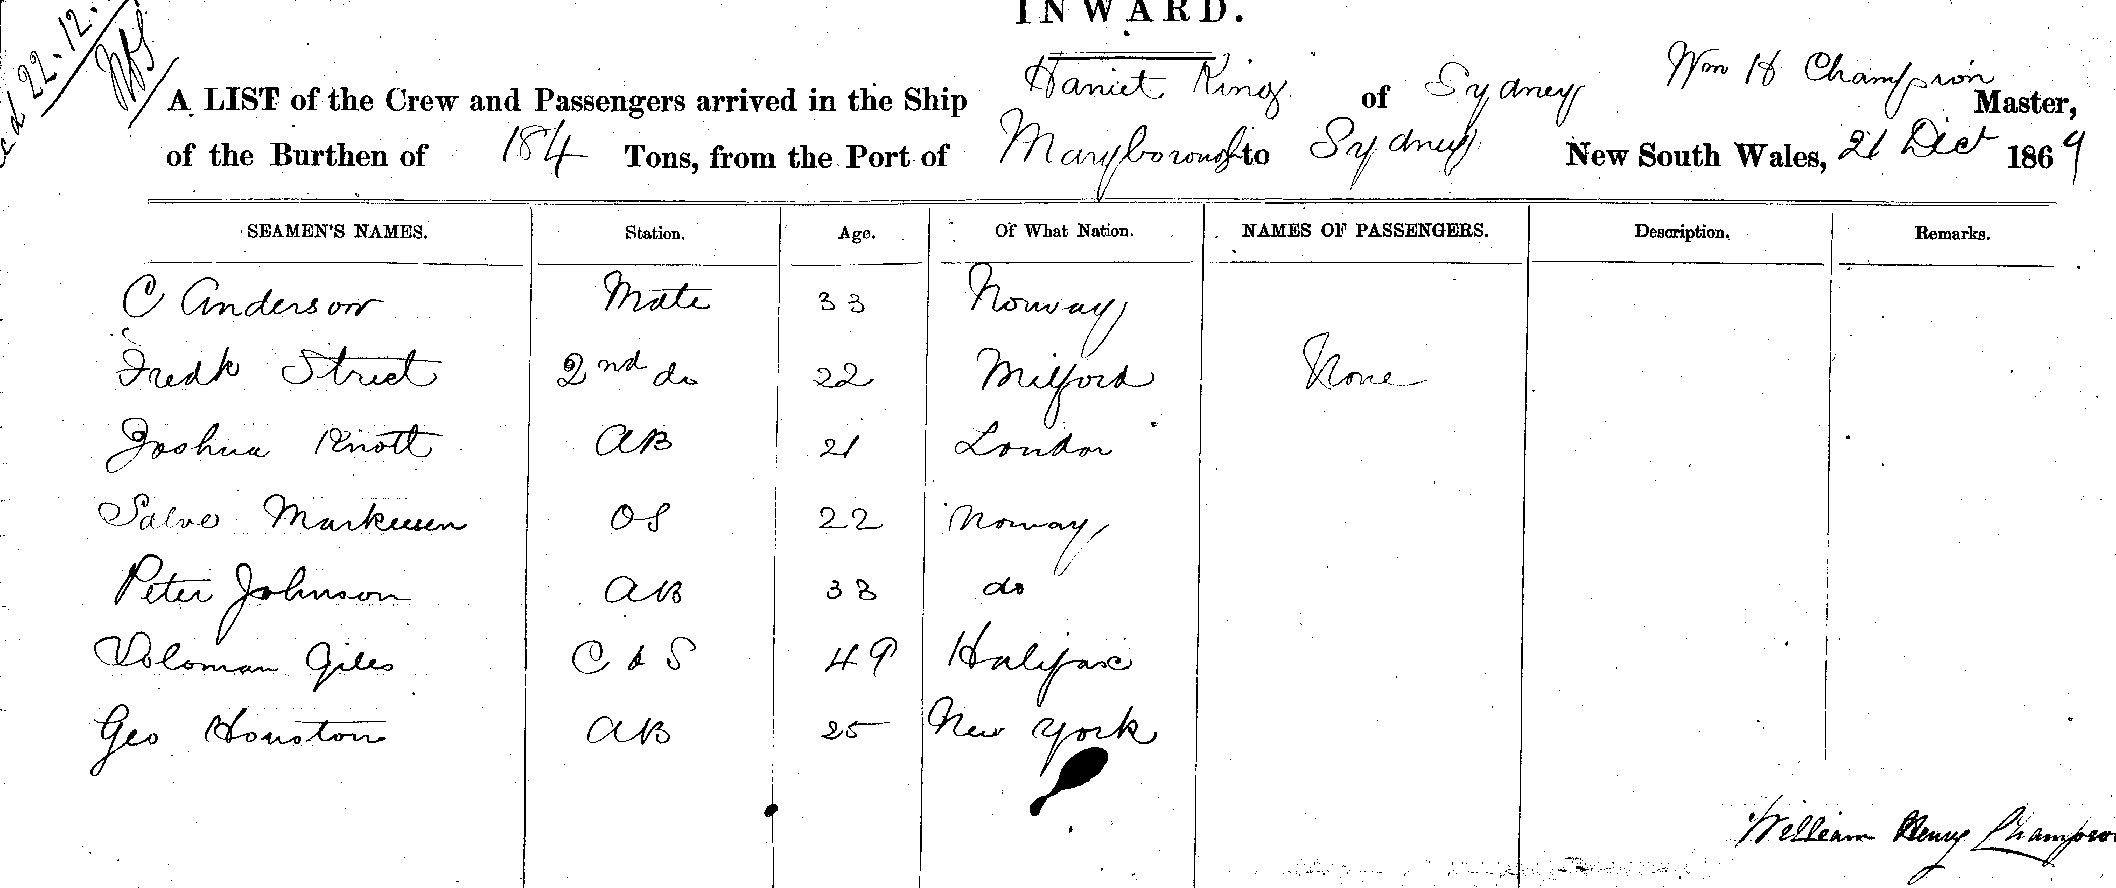 INWARD.
22.12.
A LIST of the Crew and Passengers arrived in the Ship Harriet King of Sydney Wm H Champion Master,
of the Burthen of 184 Tons, from the Port of Maryborough to Sydney New South Wales, 21 Dect 1869
SEAMEN'S NAMES. Station. Age. Of What Nation. NAMES OF PASSENGERS. Description. Remarks.
C Anderson Mate 33 Norway
Fredk Street 2nd do 22 Milford None
Joshua Knott AB 21 London
Salve Markusen OS 22 Norway
Peter Johnson AB 33 do
Soloman Giles C & S 49 Halifax
Geo Houston AB 25 New York
William Henry Champion